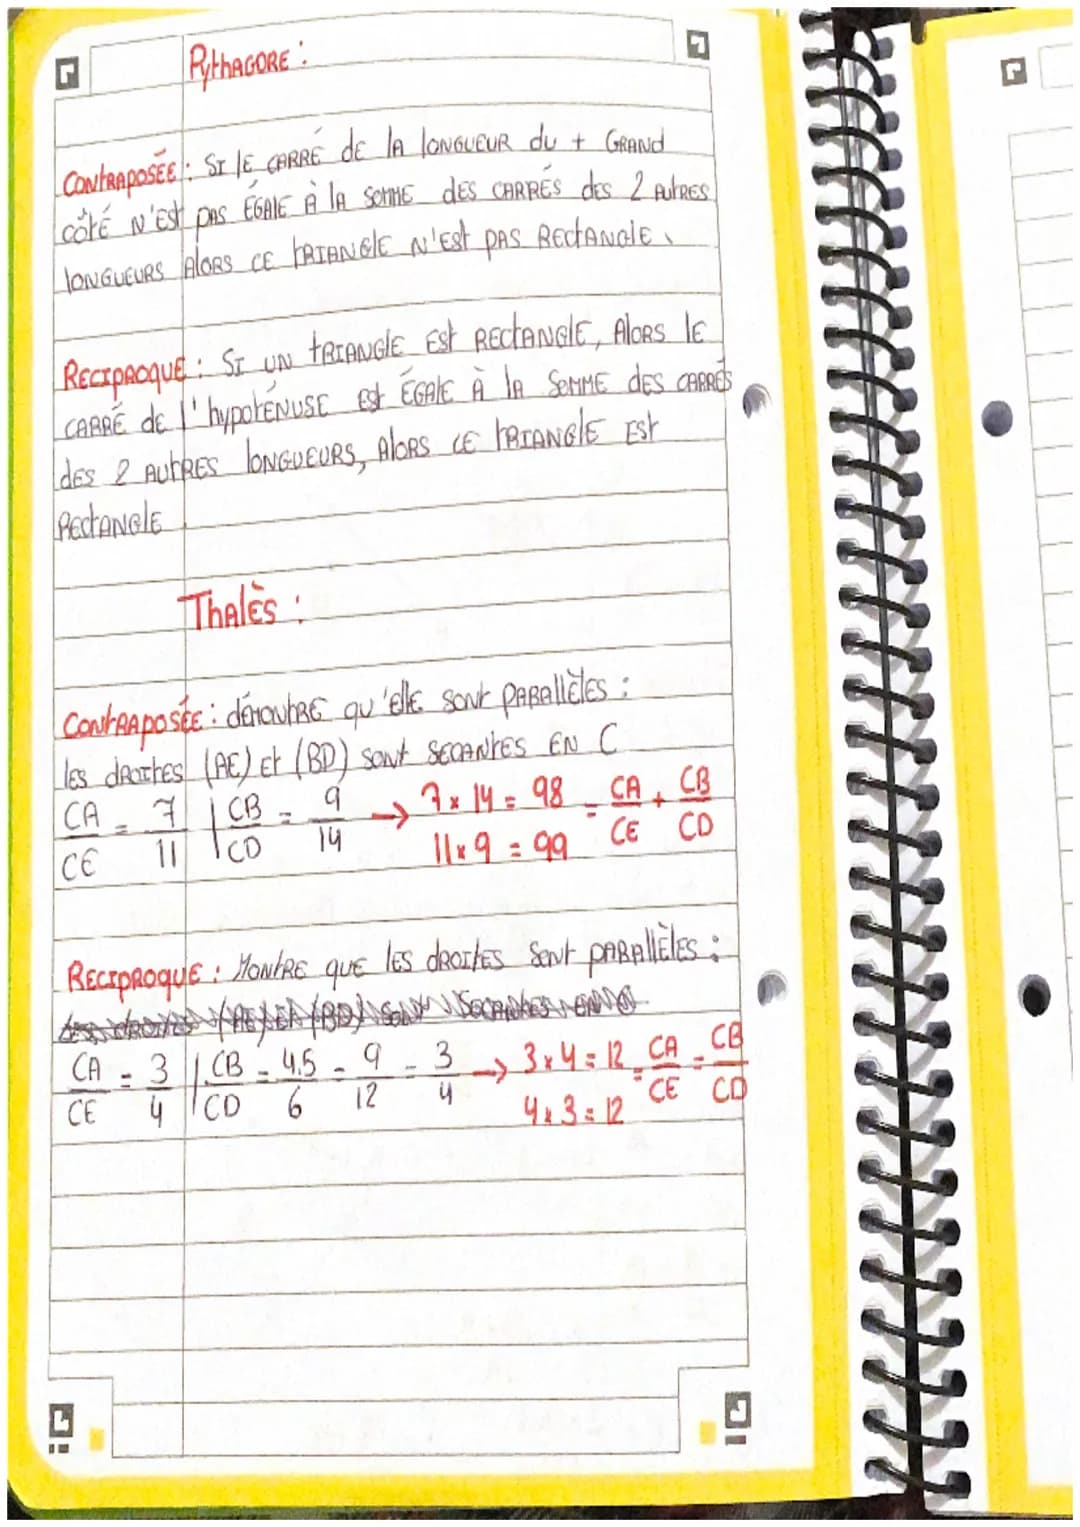 PythAGORE :
CONTRAPOSÉE : SI LE CARRÉ dE lA lONGUEUR du + GRAND
côtÉ N'Est pAS ÉGALE À lA SOMME dES CARRÉS dES 2 AUtRES
lONGUEURS AlORS CE tRIANGlE N'Est pAS RECtANGlE.
RECIPROQUE : SI UN tRIANGlE Est RECtANGlE, AlORS lE
CARRÉ dE l'hypotÉNUSE Est ÉGALE À lA SOMME dES CARRÉS
dES 2 AUtRES lONGUEURS, AlORS CE tRIANGlE Est
RECtANGlE
Thalès :
CONtRAPOSÉE : démontRE qu'EllE sont pARAllÈlEs :
lEs dROItEs (AE) Et (BD) sont SECANtES EN C
CA/CE = 7/11 | CB/CD = 9/14 → 7 x 14 = 98 11 x 9 = 99 = CA/CE + CB/CD
RECIPROQUE : MONtRE quE lEs dROItEs sont pARAllÈlEs :
CA/CE = 3/4 | CB/CD = 4.5/6 = 9/12 = 3/4 → 3 x 4 = 12 4 x 3 = 12 = CA/CE = CB/CD